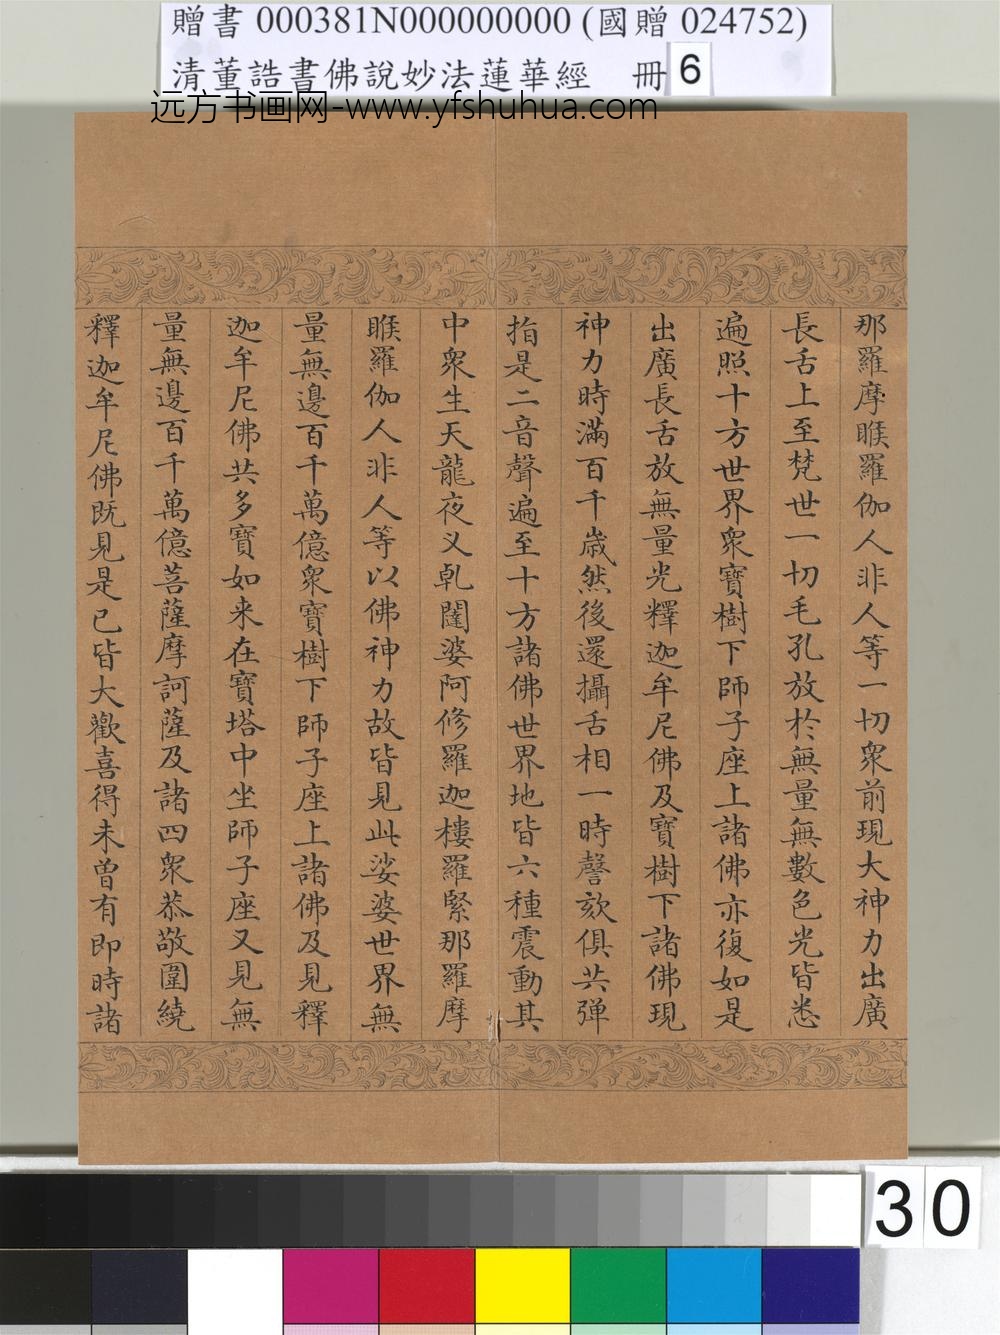 贈書 000381N000000000 (國贈 024752)
清董誥書佛說妙法蓮華經 冊 6
远方书画网-www.yfshuhua.com
那羅摩睺羅伽人非人等一切衆前現大神力出廣
長舌上至梵世一切毛孔放於無量無數色光皆悉
遍照十方世界衆寶樹下師子座上諸佛亦復如是
出廣長舌放無量光釋迦牟尼佛及寶樹下諸佛現
神力時滿百千歲然後還攝舌相一時謦欬俱共彈
指是二音聲遍至十方諸佛世界地皆六種震動其
中衆生天龍夜叉乹闥婆阿修羅迦樓羅緊那羅摩
睺羅伽人非人等以佛神力故皆見此娑婆世界無
量無邊百千萬億衆寶樹下師子座上諸佛及見釋
迦牟尼佛共多寶如来在寶塔中坐師子座又見無
量無邊百千萬億菩薩摩訶薩及諸四衆恭敬圍繞
釋迦牟尼佛既見是已皆大歡喜得未曾有即時諸
30